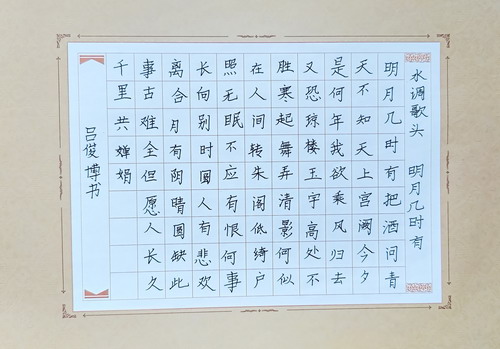 水调歌头 明月几时有
明月几时有把酒问青
天不知天上宫阙今夕
是何年我欲乘风归去
又恐琼楼玉宇高处不
胜寒起舞弄清影何似
在人间转朱阁低绮户
照无眠不应有恨何事
长向别时圆人有悲欢
离合月有阴晴圆缺此
事古难全但愿人长久
千里共婵娟
吕俊博书